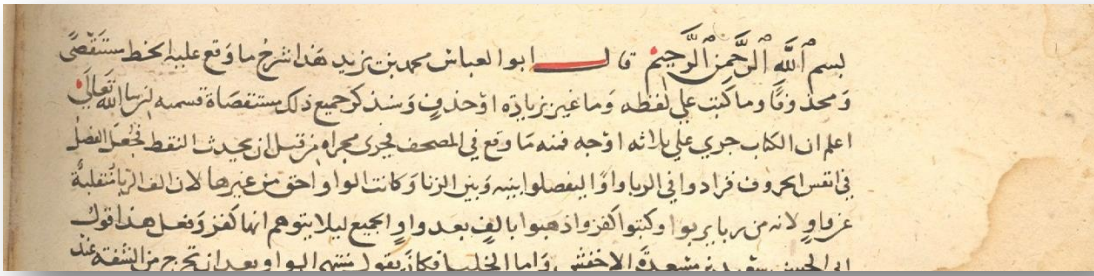 بسم الله الرحمن الرحيم قال ابو العباس محمد بن يزيد هذا شرح ما وقع عليه الخط مستقصى
ومحذوفا وما كتب على لفظه وما غير بزيادة او حذف وسنذكر جميع ذلك مستقصاة قسمه ان شا الله تعالى
اعلم ان الكتاب جرى على ثلاثه اوجه فمنه ما وقع في المصحف فجرى مجراه من قبل ان يحدث النقط فجعل الفصل
في انفس الحروف فزادوا في الربا واوا ليفصلوا بينه وبين الزنا وكانت الواو احق من غيرها لان الف الربا منقلبة
عن واو لانه من ربا يربوا وكتبوا كفروا ذهبوا بالف بعد واو الجميع ليلا يتوهم انها كفر وفعل هذا قول
ابي الحسن سعيد بن مسعدة الاخفش واما الخليل فكان يقول منتهى الواو بعد ان تخرج من الشفة عند